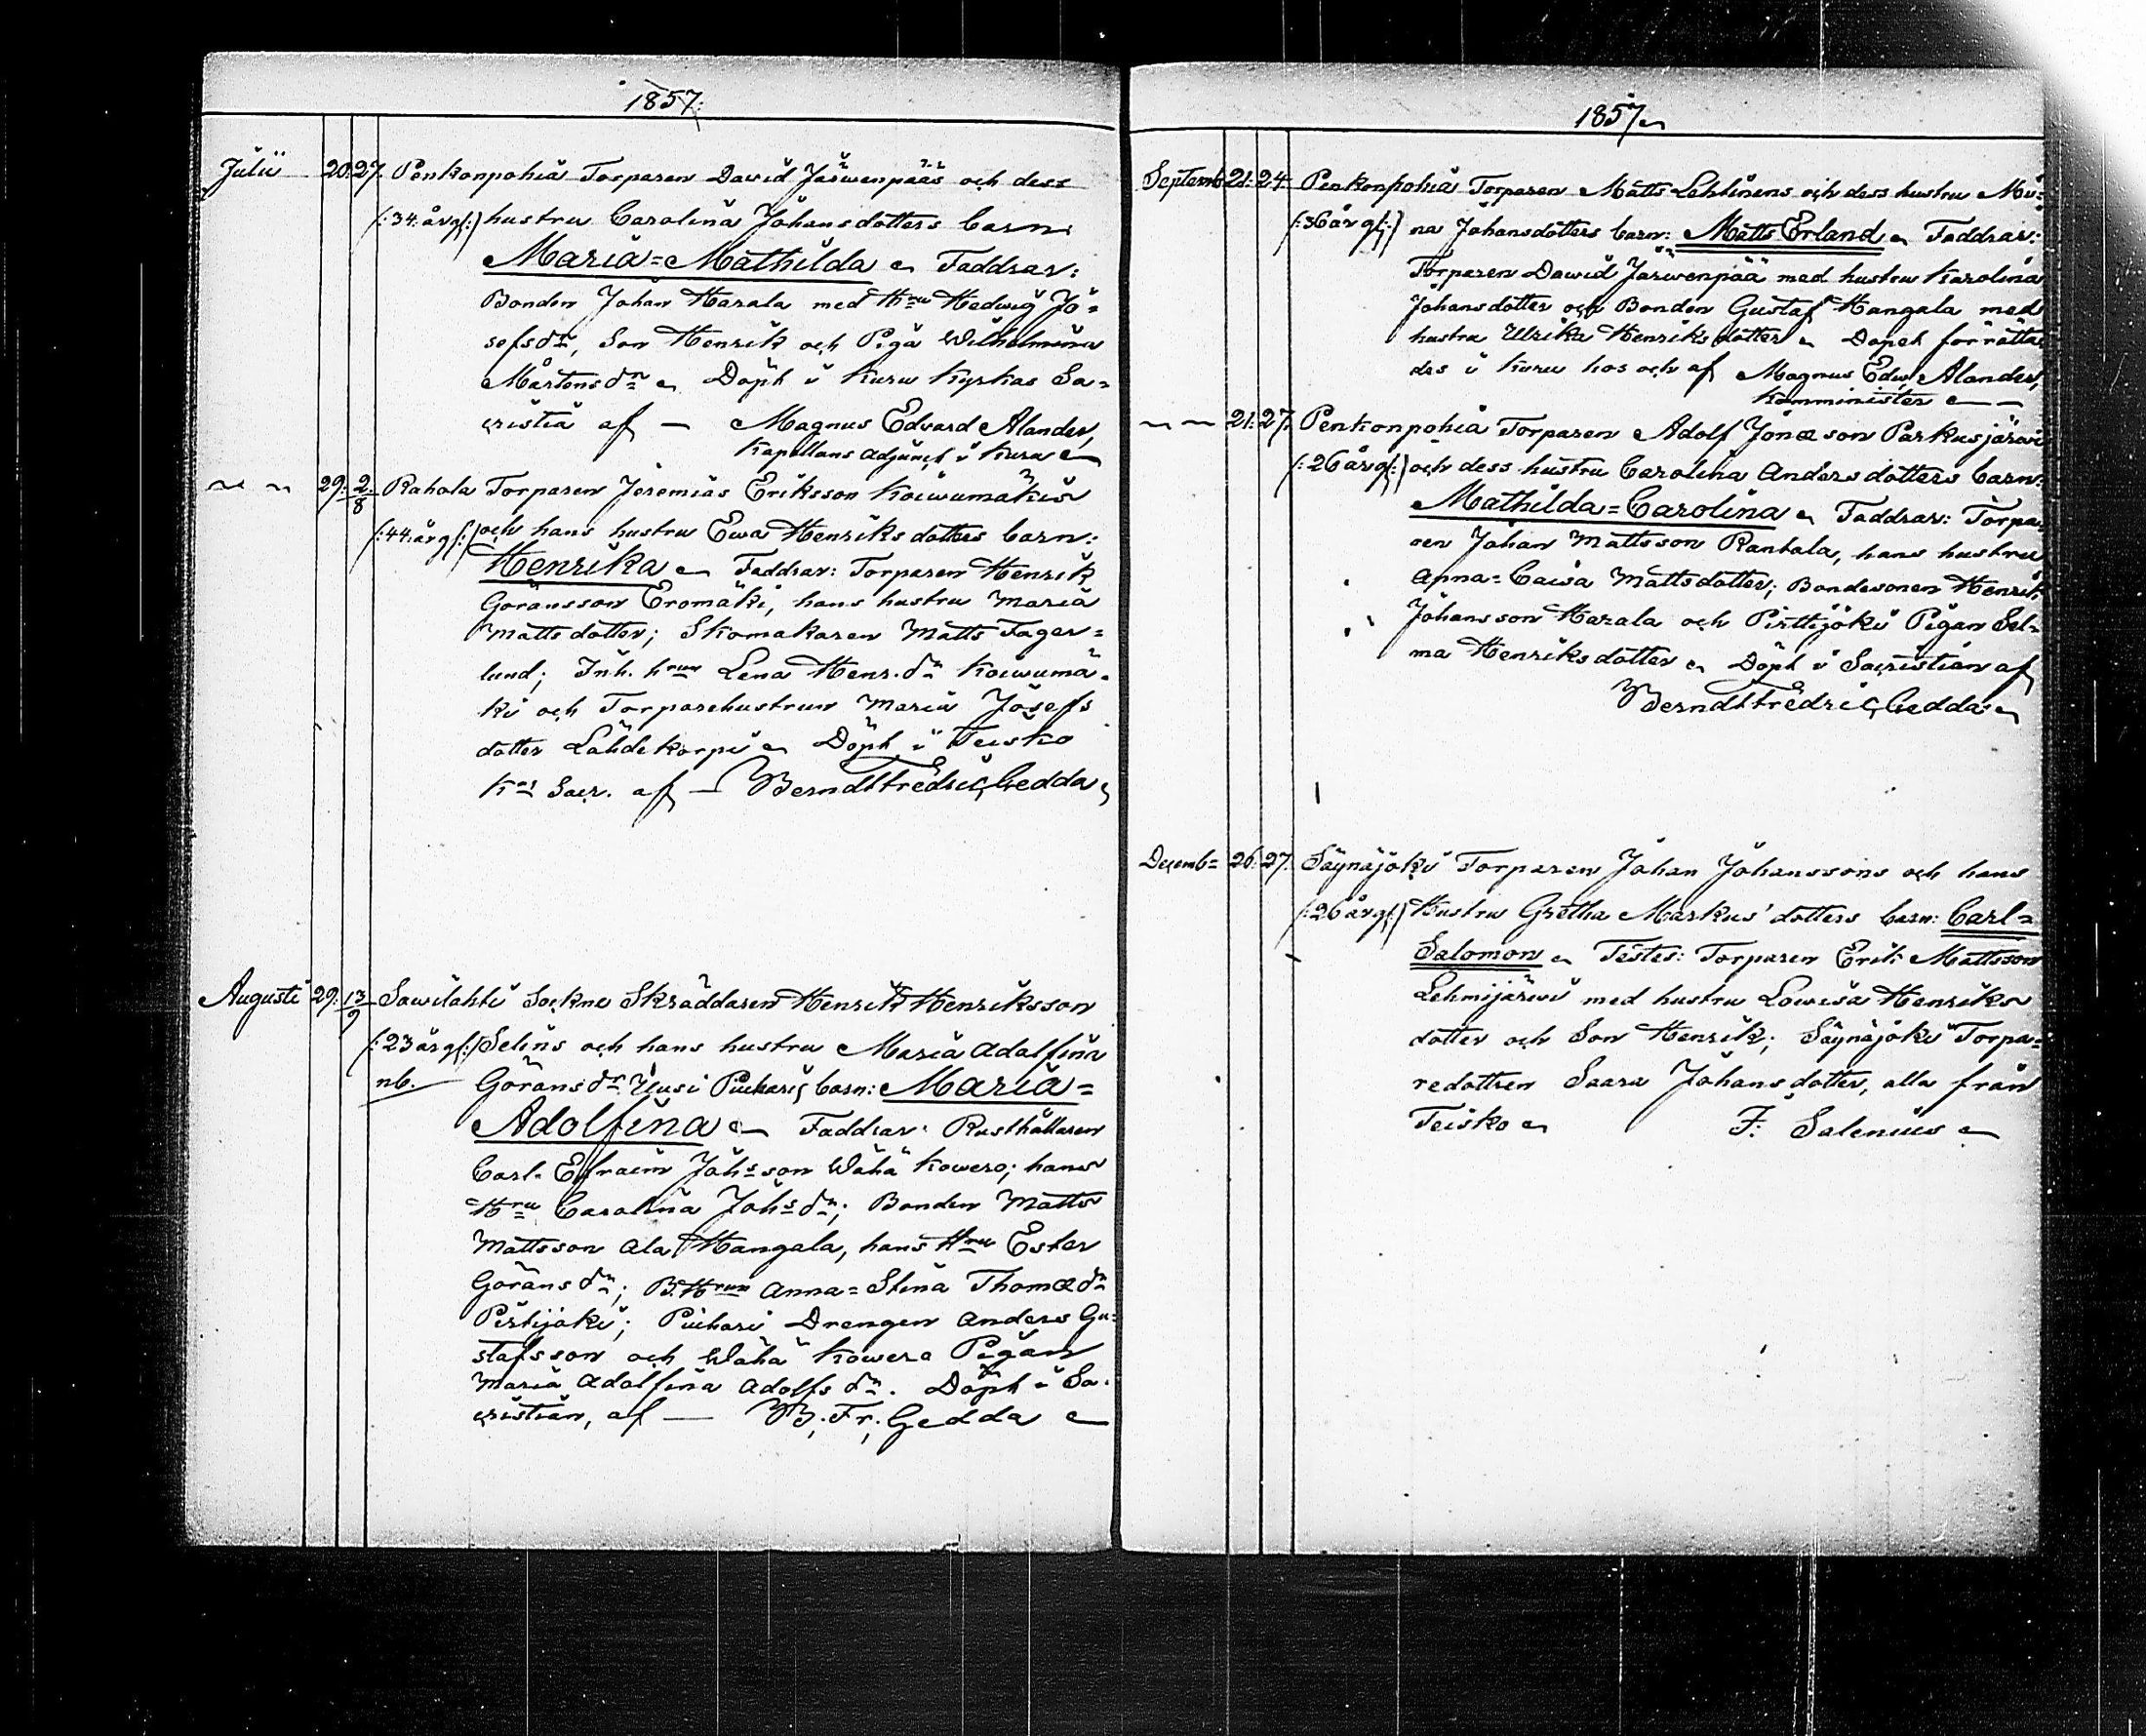 1857.
Julii 20. 27. Penkonpohia Torparen David Järwenpääs och dess
(:34 årg:) hustru Carolina Johansdotters barn:
Maria=Mathilda Faddrar:
Bonden Johan Harala med Hru Hedwig Jo=
sefsdr, Son Henrik och Piga Wilhelmina
Mårtensdr Döpt i Kuru Kyrkas Sa=
cristia af — Magnus Edvard Alander,
Kapellans adjunct i Kuru
〃 〃 29. 2/8 Rahola Torparen Jeremias Eriksson Koiwumäkis
(:44 årg:) och hans hustru Ewa Henriksdotters barn:
Henrika Faddrar: Torparen Henrik
Göransson Eromäki, hans hustru Maria
Mattsdotter; Skomakaren Matts Fager=
lund; Inh. hrun Lena Henr.dr Koiwumä=
ki och Torparehustrun Maria Josefs
dotter Lähdekorpi Döpt i Teisko
Kas Sacr. af — Berndt Fredric Gedda
Augusti 29. 13/9 Sawilahti Sockne Skräddaren Henrik Henriksson
(:23 årg:) Selins och hans hustru Maria Adolfina
nb. Göransdr Uusi Puharis barn: Maria=
Adolfina Faddrar: Rusthållaren
Carl Efraim Johsson Wähä Kowero; hans
Hru Carolina Johsdr; Bonden Matts
Mattsson Ala Hangala, hans Hru Ester
Göransdr; B.Hrun Anna=Stina Thomædr
Pirtijoki; Puhari Drengen Anders Gu=
stafsson och Wähä Kowero Pigan
Maria Adolfina Adolfsdr. Döpt i Sa=
cristian, af — B. Fr. Gedda
1857
Septemb 21. 24. Penkonpohia Torparen Matts Lehtinens och dess hustru Mi=
(:36 årg:) na Johansdotters barn: Matts Erland Faddrar:
Torparen Dawid Järwenpää med hustru Karolina
Johansdotter och Bonden Gustaf Hangala med
hustru Ulrika Henriksdotter Dopet förrätta=
des i Kuru hos och af Magnus Edw. Alander,
Komminister
〃 〃 21. 27. Penkonpohia Torparen Adolf Jonæson Parkusjärwi
(:26 årg:) och dess hustru Carolina Andersdotters barn:
Mathilda=Carolina Faddrar: Torpa=
ren Johan Mattsson Rantala, hans hustru
Anna=Caisa Mattsdotter; Bondesonen Henrik
Johansson Harala och Pirttijoki Pigan Sel=
ma Henriksdotter Döpt i Sacristian af
Berndt Fredric Gedda
Decemb= 26. 27. Säynäjoki Torparen Johan Johanssons och hans
(:26 årg:) Hustru Gretha Markus'dotters barn: Carl=
Salomon Testes: Torparen Erik Mattsson
Lehmijärwi med hustru Lowisa Henriks
dotter och Son Henrik; Säynäjoki Torpa=
redottren Saara Johansdotter, alla från
Teisko F: Salenius